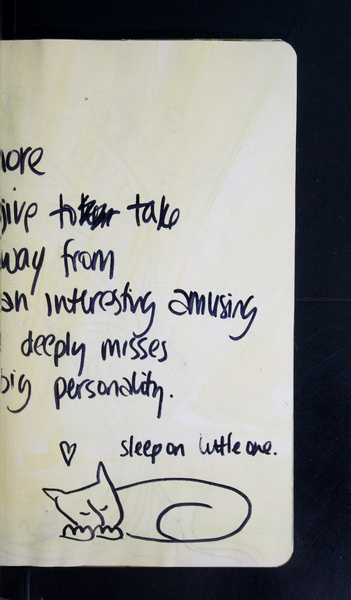 more
give to take
way from
an interesting amusing
deeply misses
big personality.
sleep on little one.